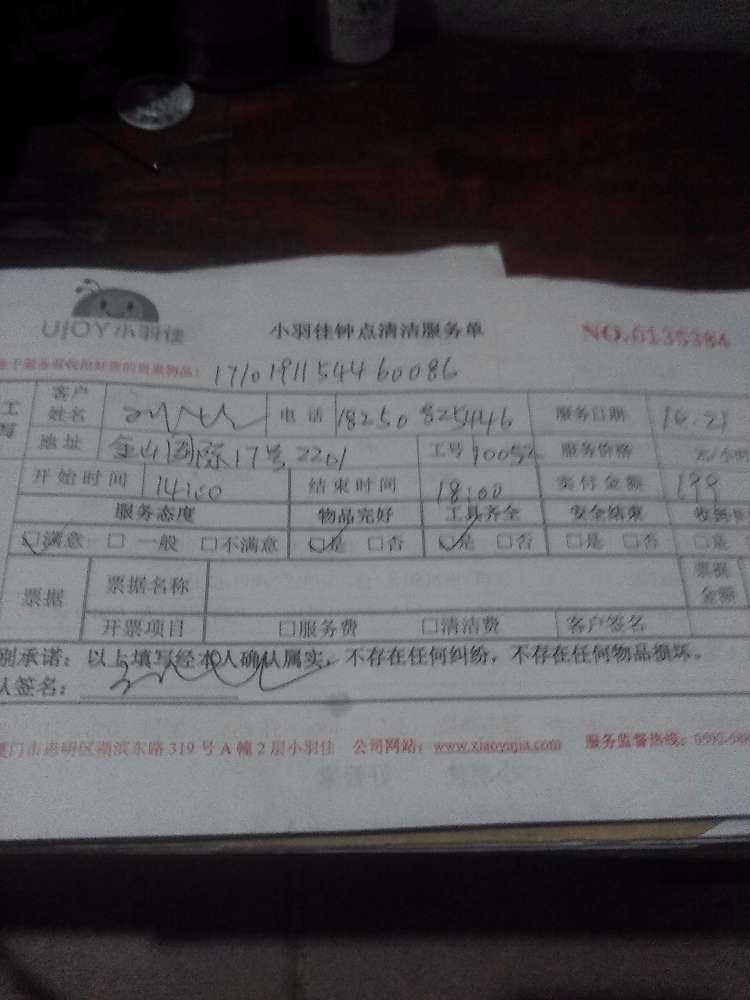 UjOY小羽佳 小羽佳钟点清洁服务单 NO.0135384
17101911544460086
客户姓名 电话 18250825446 服务日期 10.21
地址 金山国际17号2201 工号 10052 服务价格 元/小时
开始时间 14:00 结束时间 18:00 实付金额 199
服务态度 物品完好 工具齐全 安全结束
☑满意 □一般 □不满意 ☑是 □否 ☑是 □否 □是 □否
票据 票据名称 票据金额
开票项目 □服务费 □清洁费 客户签名
别承诺：以上填写经本人确认属实，不存在任何纠纷，不存在任何物品损坏。
认签名：
厦门市思明区湖滨东路319号A幢2层小羽佳 公司网站：www.xiaoyujia.com 服务监督热线：0592-